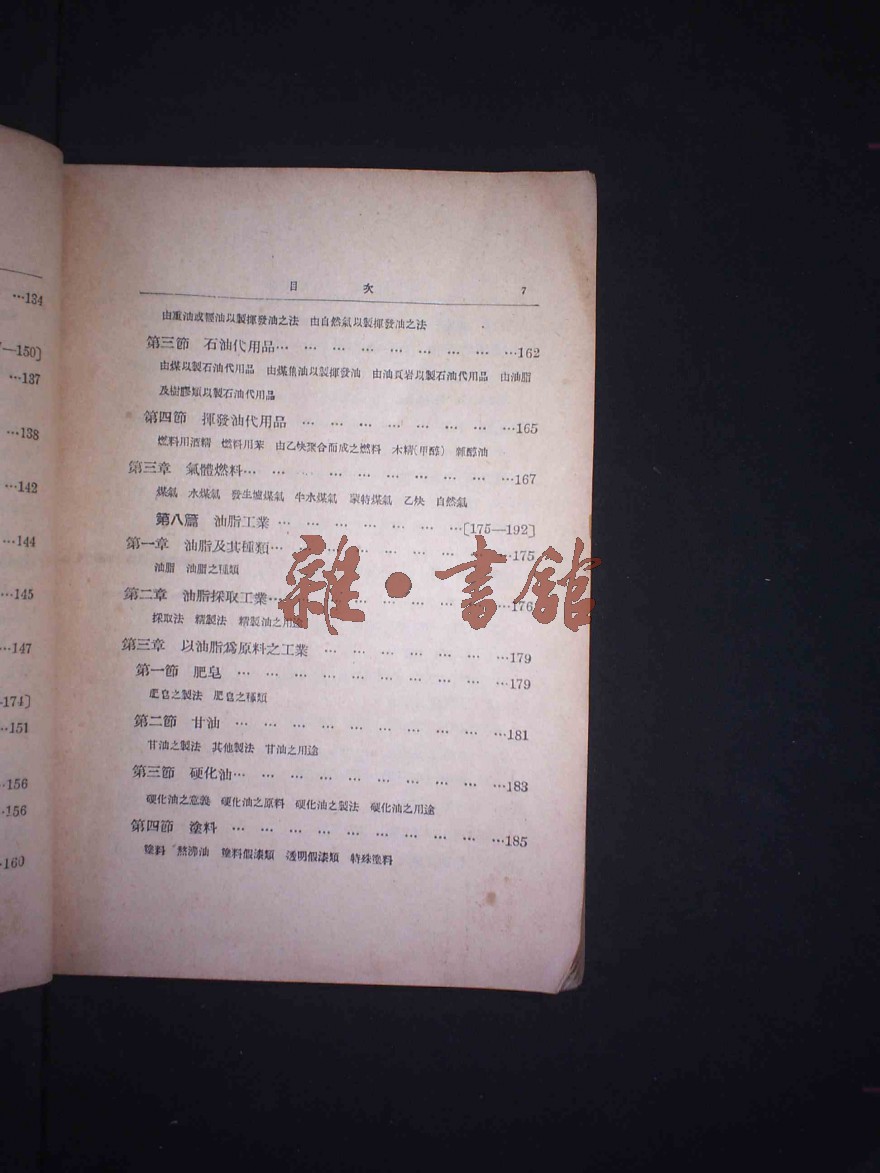 …134
—150]
…137
…138
…142
…144
…145
…147
—174]
…151
…156
…156
…160
目 次 7
由重油或輕油以製揮發油之法 由自然氣以製揮發油之法
第三節 石油代用品… … … … … … … … …162
由煤以製石油代用品 由煤焦油以製揮發油 由油頁岩以製石油代用品 由油脂
及樹膠類以製石油代用品
第四節 揮發油代用品 … … … … … … … …165
燃料用酒精 燃料用苯 由乙炔聚合而成之燃料 木精(甲醇) 雜醇油
第三章 氣體燃料… … … … … … … … … …167
煤氣 水煤氣 發生爐煤氣 半水煤氣 蒙特煤氣 乙炔 自然氣
第八篇 油脂工業 … … … … … … …[175—192]
第一章 油脂及其種類… … … … … … … … …175
油脂 油脂之種類
第二章 油脂採取工業… … … … … … … … …176
採取法 精製法 精製油之用途
第三章 以油脂爲原料之工業 … … … … … … …179
第一節 肥皂 … … … … … … … … … …179
肥皂之製法 肥皂之種類
第二節 甘油 … … … … … … … … … …181
甘油之製法 其他製法 甘油之用途
第三節 硬化油… … … … … … … … … …183
硬化油之意義 硬化油之原料 硬化油之製法 硬化油之用途
第四節 塗料 … … … … … … … … … …185
塗料 熬沸油 塗料假漆類 透明假漆類 特殊塗料
雜·書館